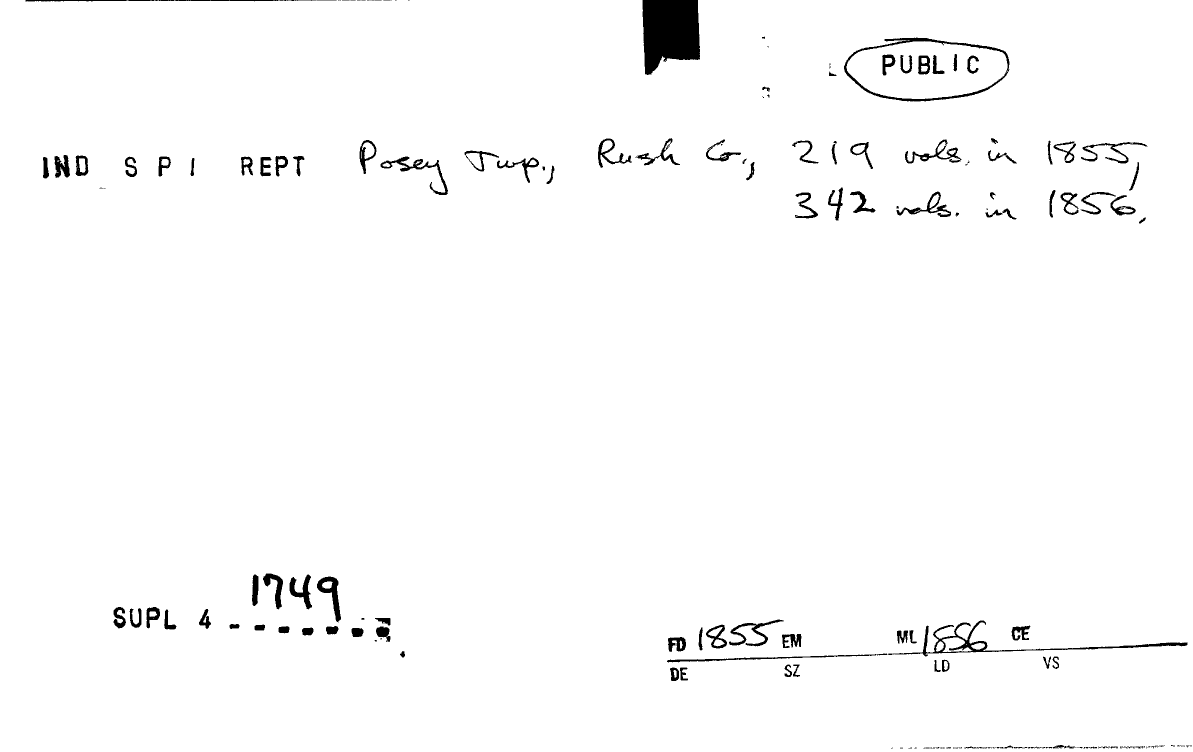 PUBLIC
IND S P I REPT Posey Twp., Rush Co., 219 vols. in 1855,
342 vols. in 1856.
1749
SUPL 4
FD 1855 EM ML 1856 CE
DE SZ LD VS